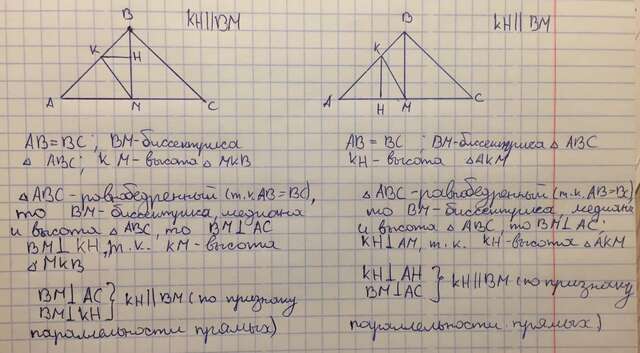 KH||BM
B
K
H
A
M
C
AB=BC; BM-биссектриса
△ ABC; KM-высота △ MKB
△ABC-равнобедренный (т.к. AB=BC),
то BM-биссектриса, медиана
и высота △ ABC, то BM⊥AC
BM⊥KH, т.к. KM-высота
△MKB
BM⊥AC
BM⊥KH } KH||BM (по признаку
параллельности прямых)
KH||BM
B
K
A
H
M
C
AB=BC; BM-биссектриса △ABC
KH-высота △AKM
△ABC-равнобедренный (т.к. AB=BC)
то BM-биссектриса, медиана
и высота △ABC, то BM⊥AC;
KH⊥AM, т.к. KH-высота △AKM
KH⊥AH
BM⊥AC } KH||BM (по признаку
параллельности прямых)